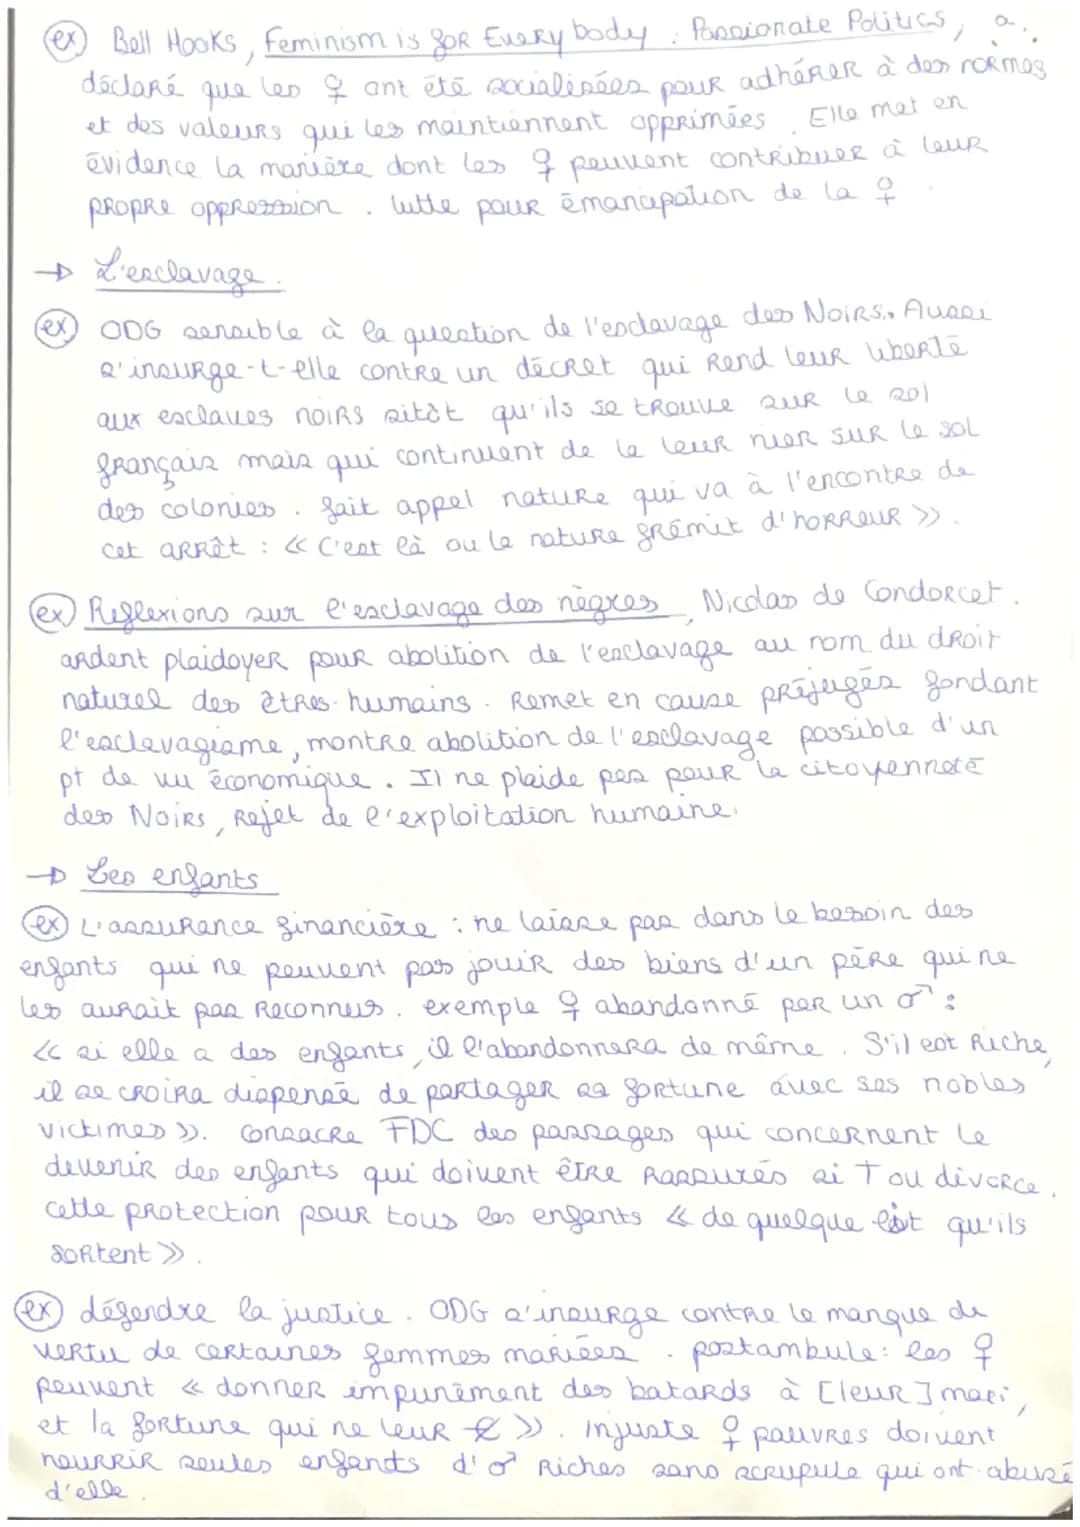 (ex) Bell Hooks, Feminism is for Everybody : Passionate Politics, a
déclaré que les ♀ ont été socialisées pour adhérer à des normes
et des valeurs qui les maintiennent opprimées. Elle met en
évidence la manière dont les ♀ peuvent contribuer à leur
propre oppression. lutte pour émancipation de la ♀.
→ L'esclavage.
(ex) ODG sensible à la question de l'esclavage des Noirs. Aussi
s'insurge-t-elle contre un décret qui rend leur liberté
aux esclaves noirs sitôt qu'ils se trouve sur le sol
français mais qui continuent de la leur nier sur le sol
des colonies. fait appel nature qui va à l'encontre de
cet arrêt : « C'est là ou la nature frémit d'horreur ».
(ex) Reflexions sur l'esclavage des nègres, Nicolas de Condorcet.
ardent plaidoyer pour abolition de l'esclavage au nom du droit
naturel des êtres humains. Remet en cause préjugés fondant
l'esclavagisme, montre abolition de l'esclavage possible d'un
pt de vu économique. Il ne plaide pas pour la citoyenneté
des Noirs, rejet de l'exploitation humaine.
→ Les enfants
(ex) L'assurance financière : ne laisse pas dans le besoin des
enfants qui ne peuvent pas jouir des biens d'un père qui ne
les aurait pas reconnus. exemple ♀ abandonné par un ♂ :
« si elle a des enfants, il l'abandonnera de même. S'il est Riche,
il se croira dispensé de partager sa fortune avec ses nobles
victimes ». Consacre FDC des passages qui concernent le
devenir des enfants qui doivent être rassurés si † ou divorce.
cette protection pour tous les enfants « de quelque lit qu'ils
sortent ».
(ex) défendre la justice. ODG s'insurge contre le manque de
vertu de certaines femmes mariées. postambule: les ♀
peuvent « donner impunément des batards à [leur] mari,
et la fortune qui ne leur ». Injuste ♀ pauvres doivent
nourrir seules enfants d'♂ riches sans scrupule qui ont abusé
d'elle.